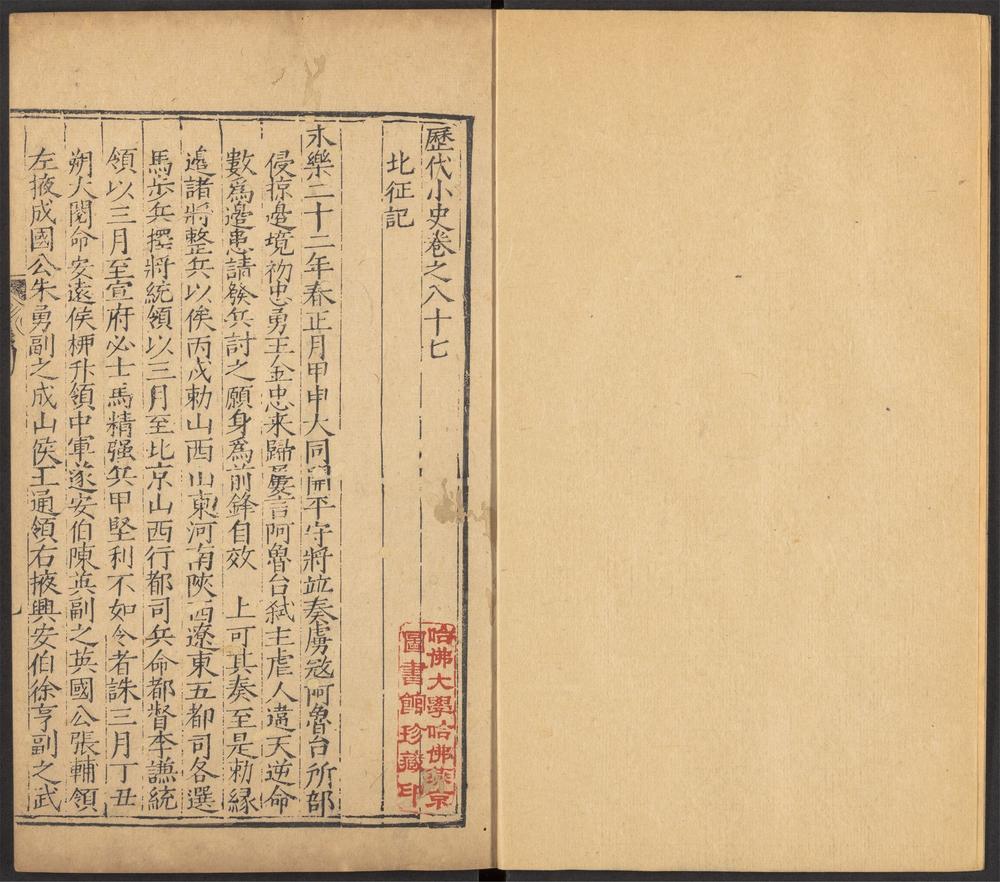 歷代小史卷之八十七
北征記
永樂二十二年春正月甲申大同開平守將竝奏虜寇阿魯台所部
侵掠邊境初忠勇王金忠來歸屢言阿魯台弑主虐人違天逆命
數爲邊患請發兵討之願身爲前鋒自效 上可其奏至是勅緣
邊諸將整兵以俟丙戌勅山西山東河南陝西遼東五都司各選
馬步兵擇將統領以三月至北京山西行都司兵命都督李謙統
領以三月至宣府必士馬精强兵甲堅利不如令者誅三月丁丑
朔大閱命安遠侯柳升領中軍遂安伯陳英副之英國公張輔領
左掖成國公朱勇副之成山侯王通領右掖興安伯徐亨副之武
哈佛大學哈佛燕京
圖書館珍藏印